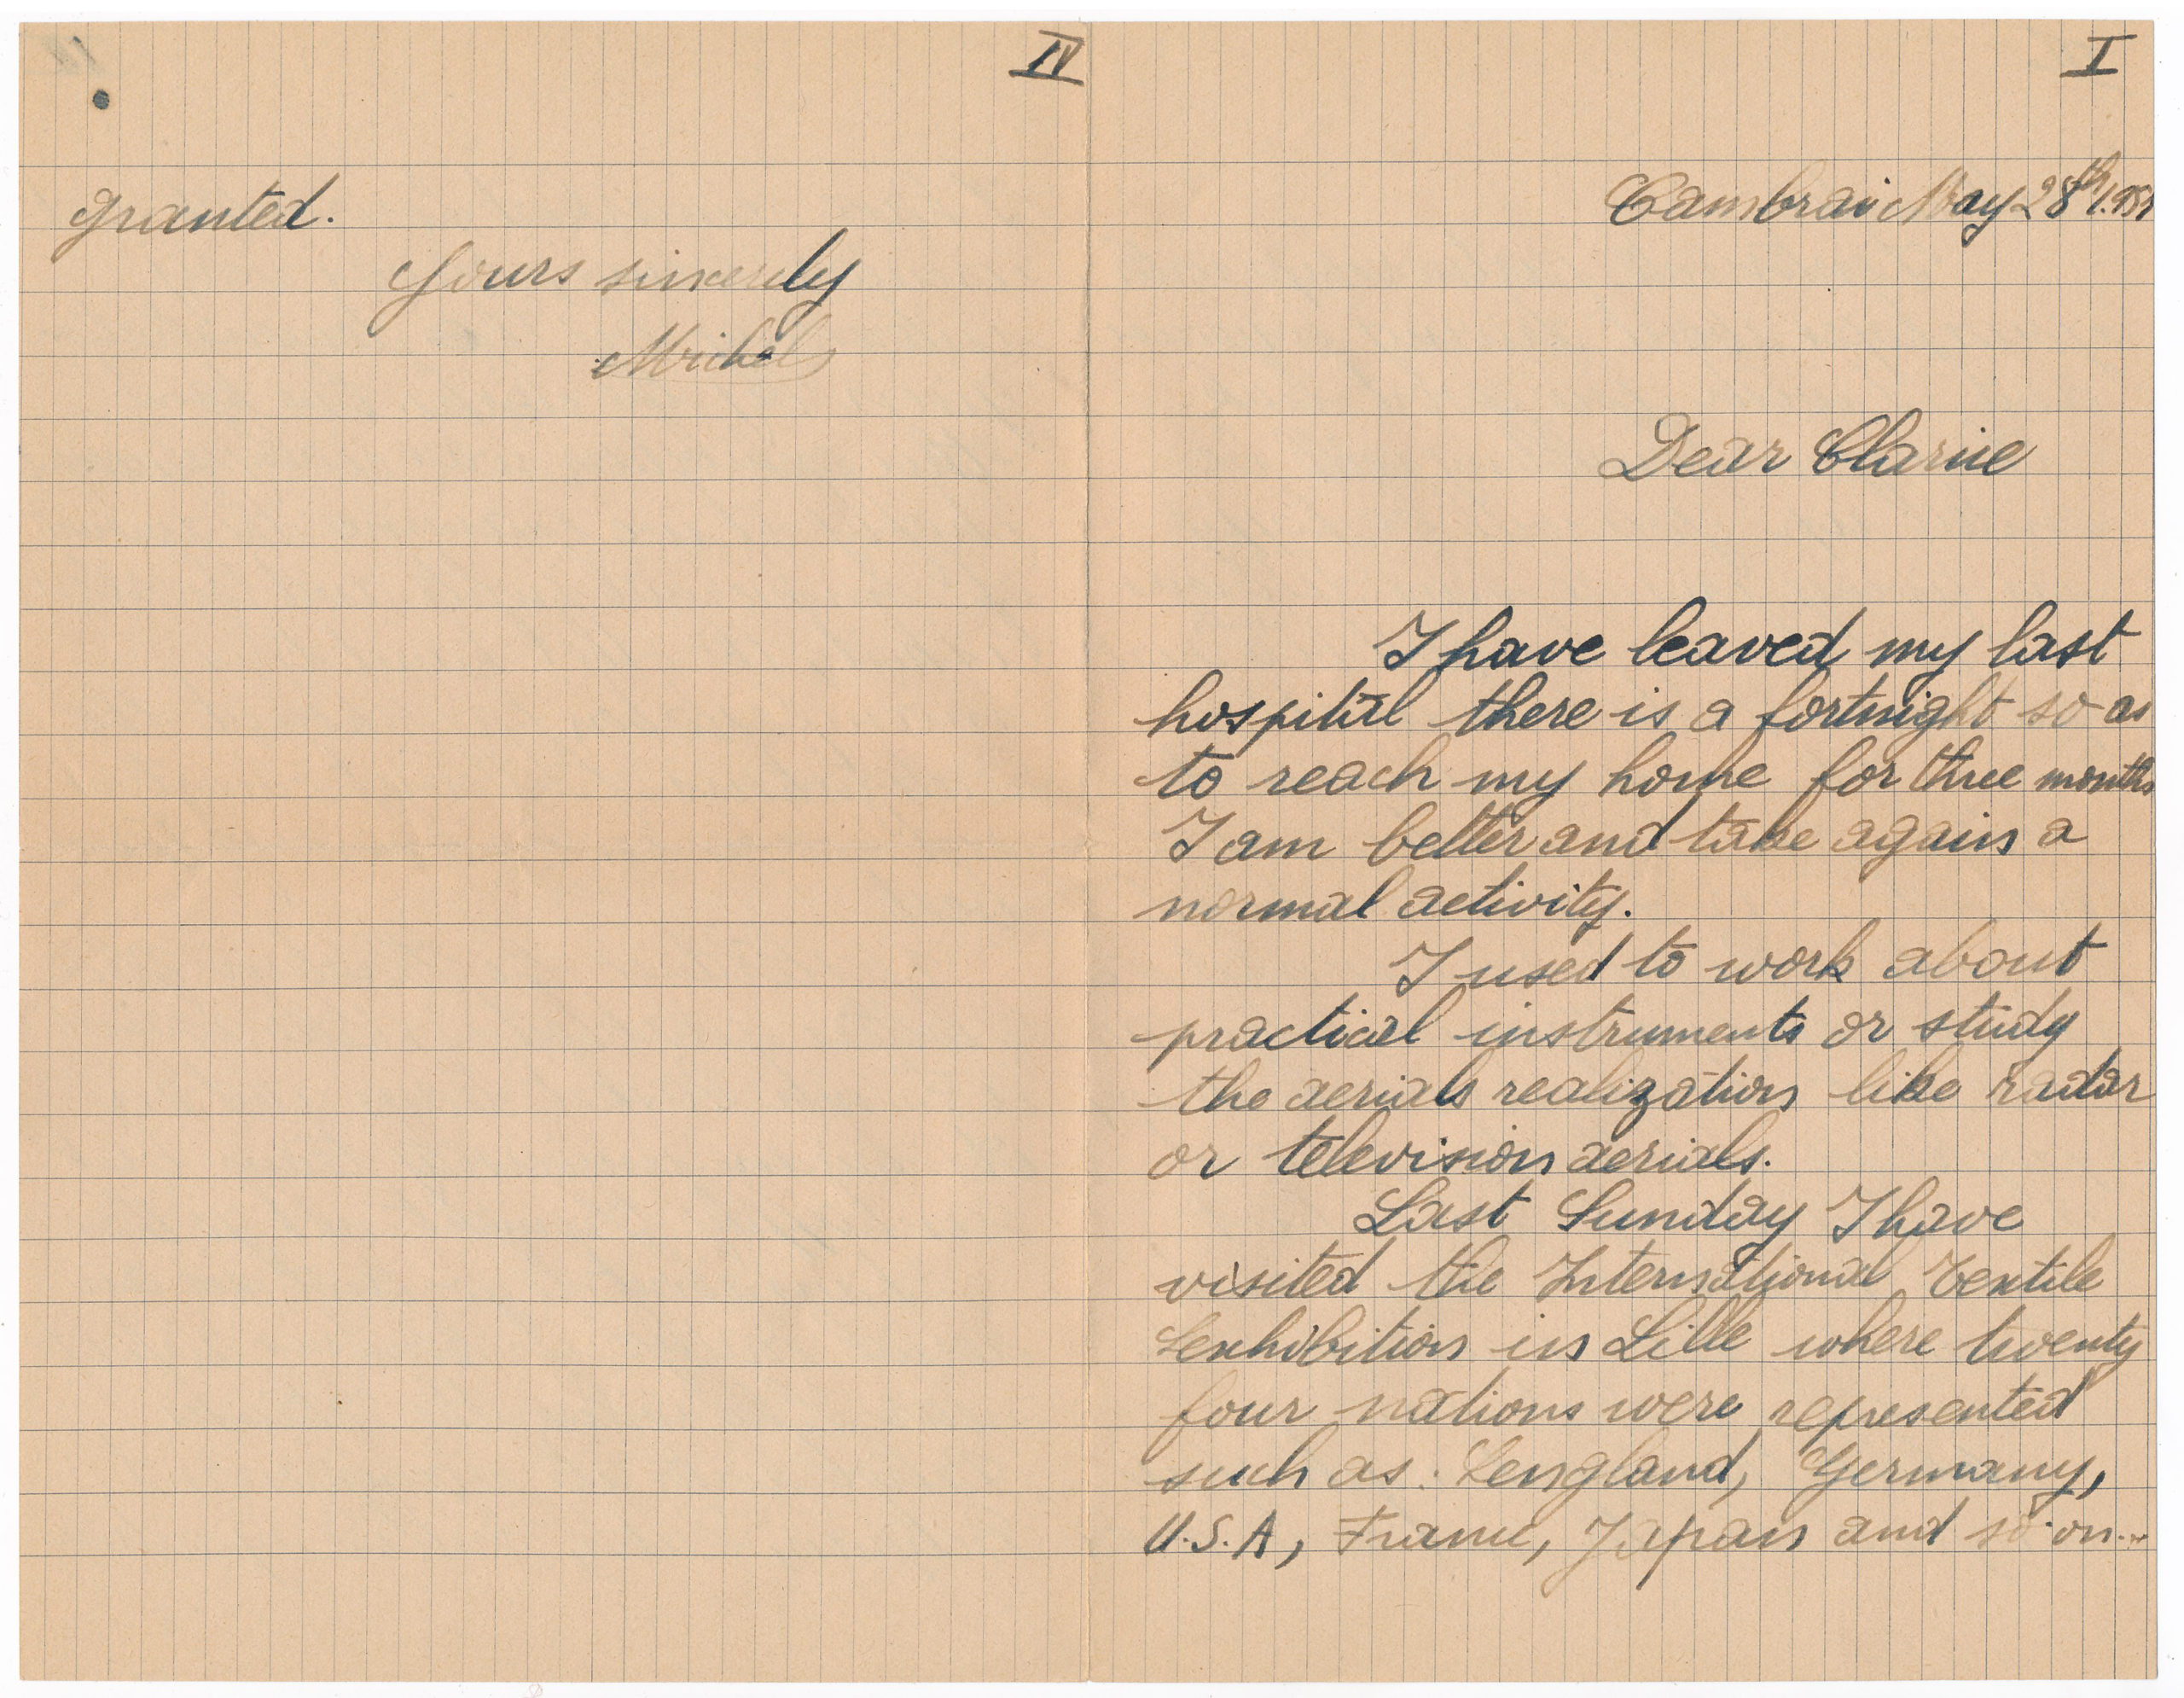 IV
granted.
Yours sincerely
Michel
I
Cambrai May 28th 1.951
Dear Clarice
I have leaved my last
hospital there is a fortnight so as
to reach my home for three months
I am better and take again a
normal activity.
I used to work about
practical instruments or study
the aerials realization like radar
or television aerials.
Last Sunday I have
visited the International Textile
Exhibition in Lille where twenty
four nations were represented
such as : England, Germany,
U.S.A, France, Japan and so on...